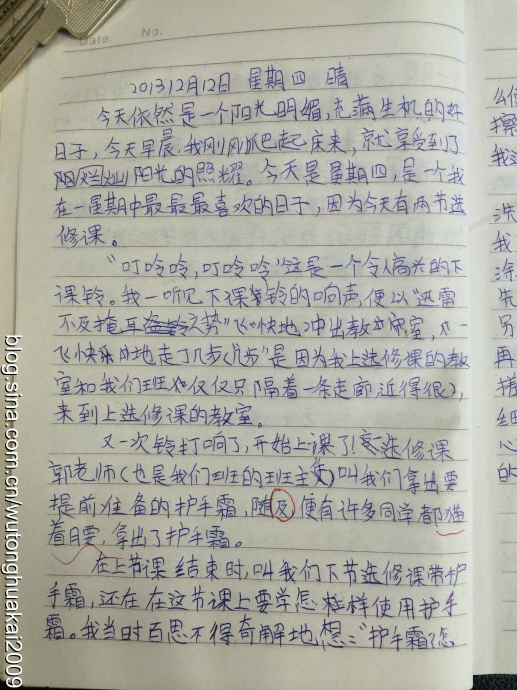 Date. No.
2013 12月12日 星期四 晴
今天依然是一个阳光明媚,充满生机的好
日子,今天早晨,我刚刚爬起床来,就享受到了
阳光的照耀。今天是星期四,是一个我
在一星期中最最最喜欢的日子,因为今天有两节选
修课。
“叮呤呤,叮呤呤”这是一个令人高兴的下
课铃。我一听见下课铃的响声,便以“迅雷
不及掩耳之势”飞快地冲出教室,
飞快地走了几步(几步”是因为我上选修课的教
室和我们班仅仅只隔着一条走廊,近得很),
来到上选修课的教室。
又一次铃打响了,开始上课了!选修课
郭老师(也是我们班的班主任)叫我们拿出要
提前准备的护手霜,随反便有许多同学都猫
着月要,拿出了护手霜。
在上节课结束时,叫我们下节选修课带护
手霜,还在在这节课上要学怎样使用护手
霜。我当时百思不得奇解地想:“护手霜怎
么
擦
我
洗
我
涂
先
另
再
搓
细
心
的
blog.sina.com.cn/wutonghuakai2009